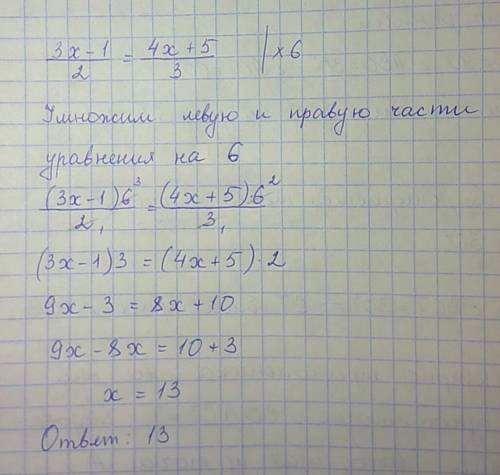 (3x-1)/2 = (4x+5)/3 | x6
Умножим левую и правую части
уравнения на 6
(3x-1)6³/2₁ = (4x+5)·6²/3₁
(3x-1)3 = (4x+5)·2
9x-3 = 8x+10
9x-8x = 10+3
x = 13
Ответ: 13